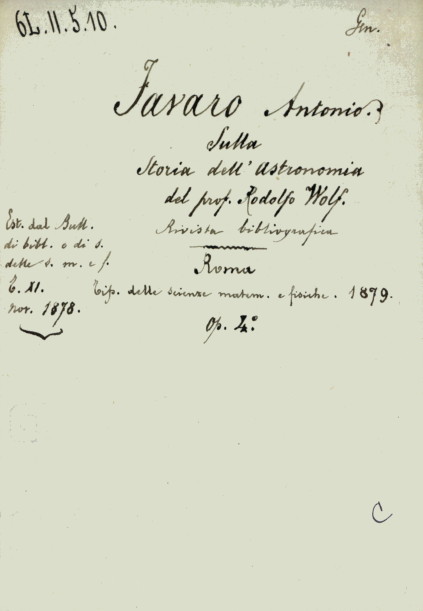 6L.II.5.10.
Gen.
Favaro Antonio.
Sulla
Storia dell'Astronomia
del prof. Rodolfo Wolf.
Rivista bibliografica
Roma
Tip. delle scienze matem. e fisiche. 1879.
Op. 4°
Est. dal Bull.
di bibl. e di s.
delle s. m. e f.
T. XI.
nov. 1878.
C